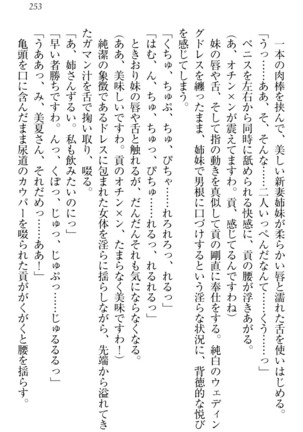 253
一本の肉棒を挟んで、美しい新妻姉妹が柔らかな唇と濡れた舌を使い始める。
「うっ……ああ、そ、そんな……二人いっぺんだなんて……くうっ……っ」
ペニスを左右から同時に舐められる快感に、貢の腰が浮きあがる。
(あ、オチン×ンが震えてますわ。貢、感じてるんですわね)
妹の唇や舌、そして指の動きを真似しつつ貢の剛直に奉仕をする。純白のウェディン
グドレスを纏ったまま、姉妹で男根に口づけするという淫らな状況に、背徳的な悦び
を感じてしまう。
「くちゅ、ちゅぷ、ちゅっ、ぴちゃ……れろれろっ、れるっ」
「はむ、ん、ちゅ、ちゅっ、ぴちゃ……れるれるっ」
ときおり妹の唇や舌と触れるが、だんだんそれも気にならなくなってくる。
(ああ、美味しいですわ。貢のオチン×ン、たまらなく美味ですわ!)
純潔の象徴であるドレスに包まれた女体を淫らに揺すりながら、先端から溢れてき
たガマン汁を舌で掬い取り、啜る。
「あ、姉さんずるい。私も飲みたいのにっ」
「早い者勝ちですわ。んっ、くぽっ、じゅっ、じゅぷっ……じゅるるるっ」
「うああっ、み、美夏さん、それだめっ……ああっ!」
亀頭を口に含んだまま尿道のカウパーを啜られた貢ががくがくと腰を揺らす。